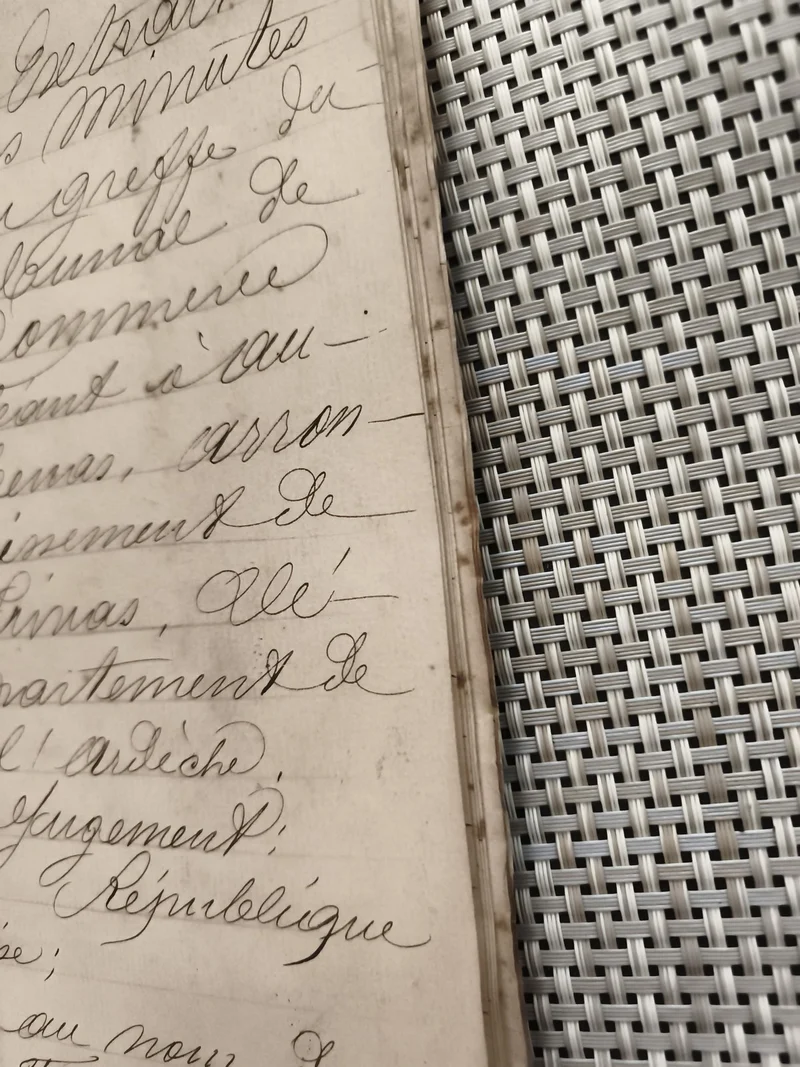 Extrait
s minutes
u greffe du
bunal de
Commerce
éant à au-
benas, arron-
issement de
Privas, dé-
partement de
l'ardèche,
Jugement;
République
se;
au nom d